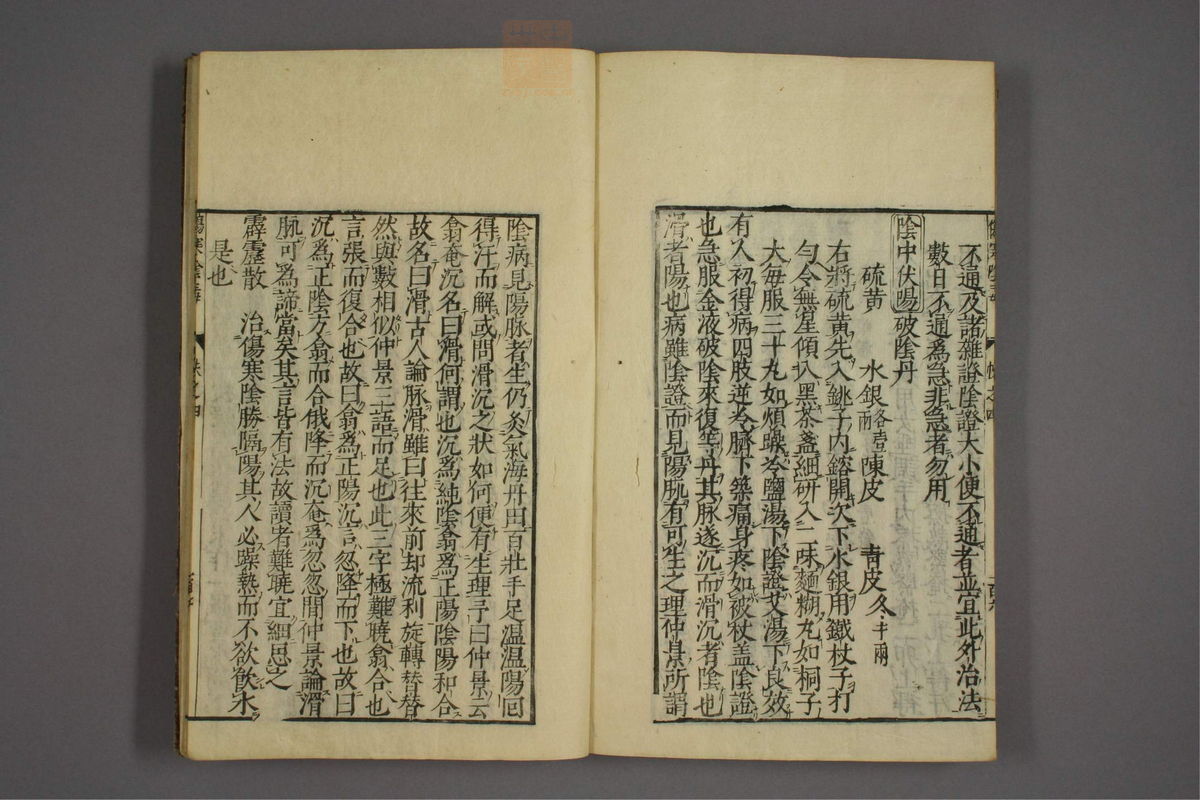 不通及諸雜證陰證大小便不通者並宜此外治法
數日不通爲急非急者勿用
陰中伏陽破陰丹
硫黄 水銀各壹兩 陳皮 青皮各半兩
右將硫黄先入銚子内鎔開次下水銀用鐵杖子打
勻令無星傾入黑茶盞細研入二味麵糊丸如桐子
大每服三十丸如煩躁冷鹽湯下陰證艾湯下良效
有人初得病四肢逆冷臍下築痛身疼如被杖盖陰證
也急服金液破陰來復等丹其脉遂沉而滑沉者陰也
滑者陽也病雖陰證而見陽脉有可生之理仲景所謂
陰病見陽脉者生仍灸氣海丹田百壯手足温温陽回
得汗而解或問滑沉之狀如何便有生理予曰仲景云
翕奄沉名曰滑何謂也沉爲純陰翕爲正陽陰陽和合
故名曰滑古人論脉滑雖曰往來前却流利旋轉替替
然與數相似仲景三語而足也此三字極難曉翕合也
言張而復合也故曰翕爲正陽沉言忽降而下也故曰
沉爲正陰方翕而合俄降而沉奄爲忽忽間仲景論滑
脉可爲諦當矣其言皆有法故讀者難曉宜細思之
霹靂散 治傷寒陰勝隔陽其人必躁熱而不欲飲水
是也